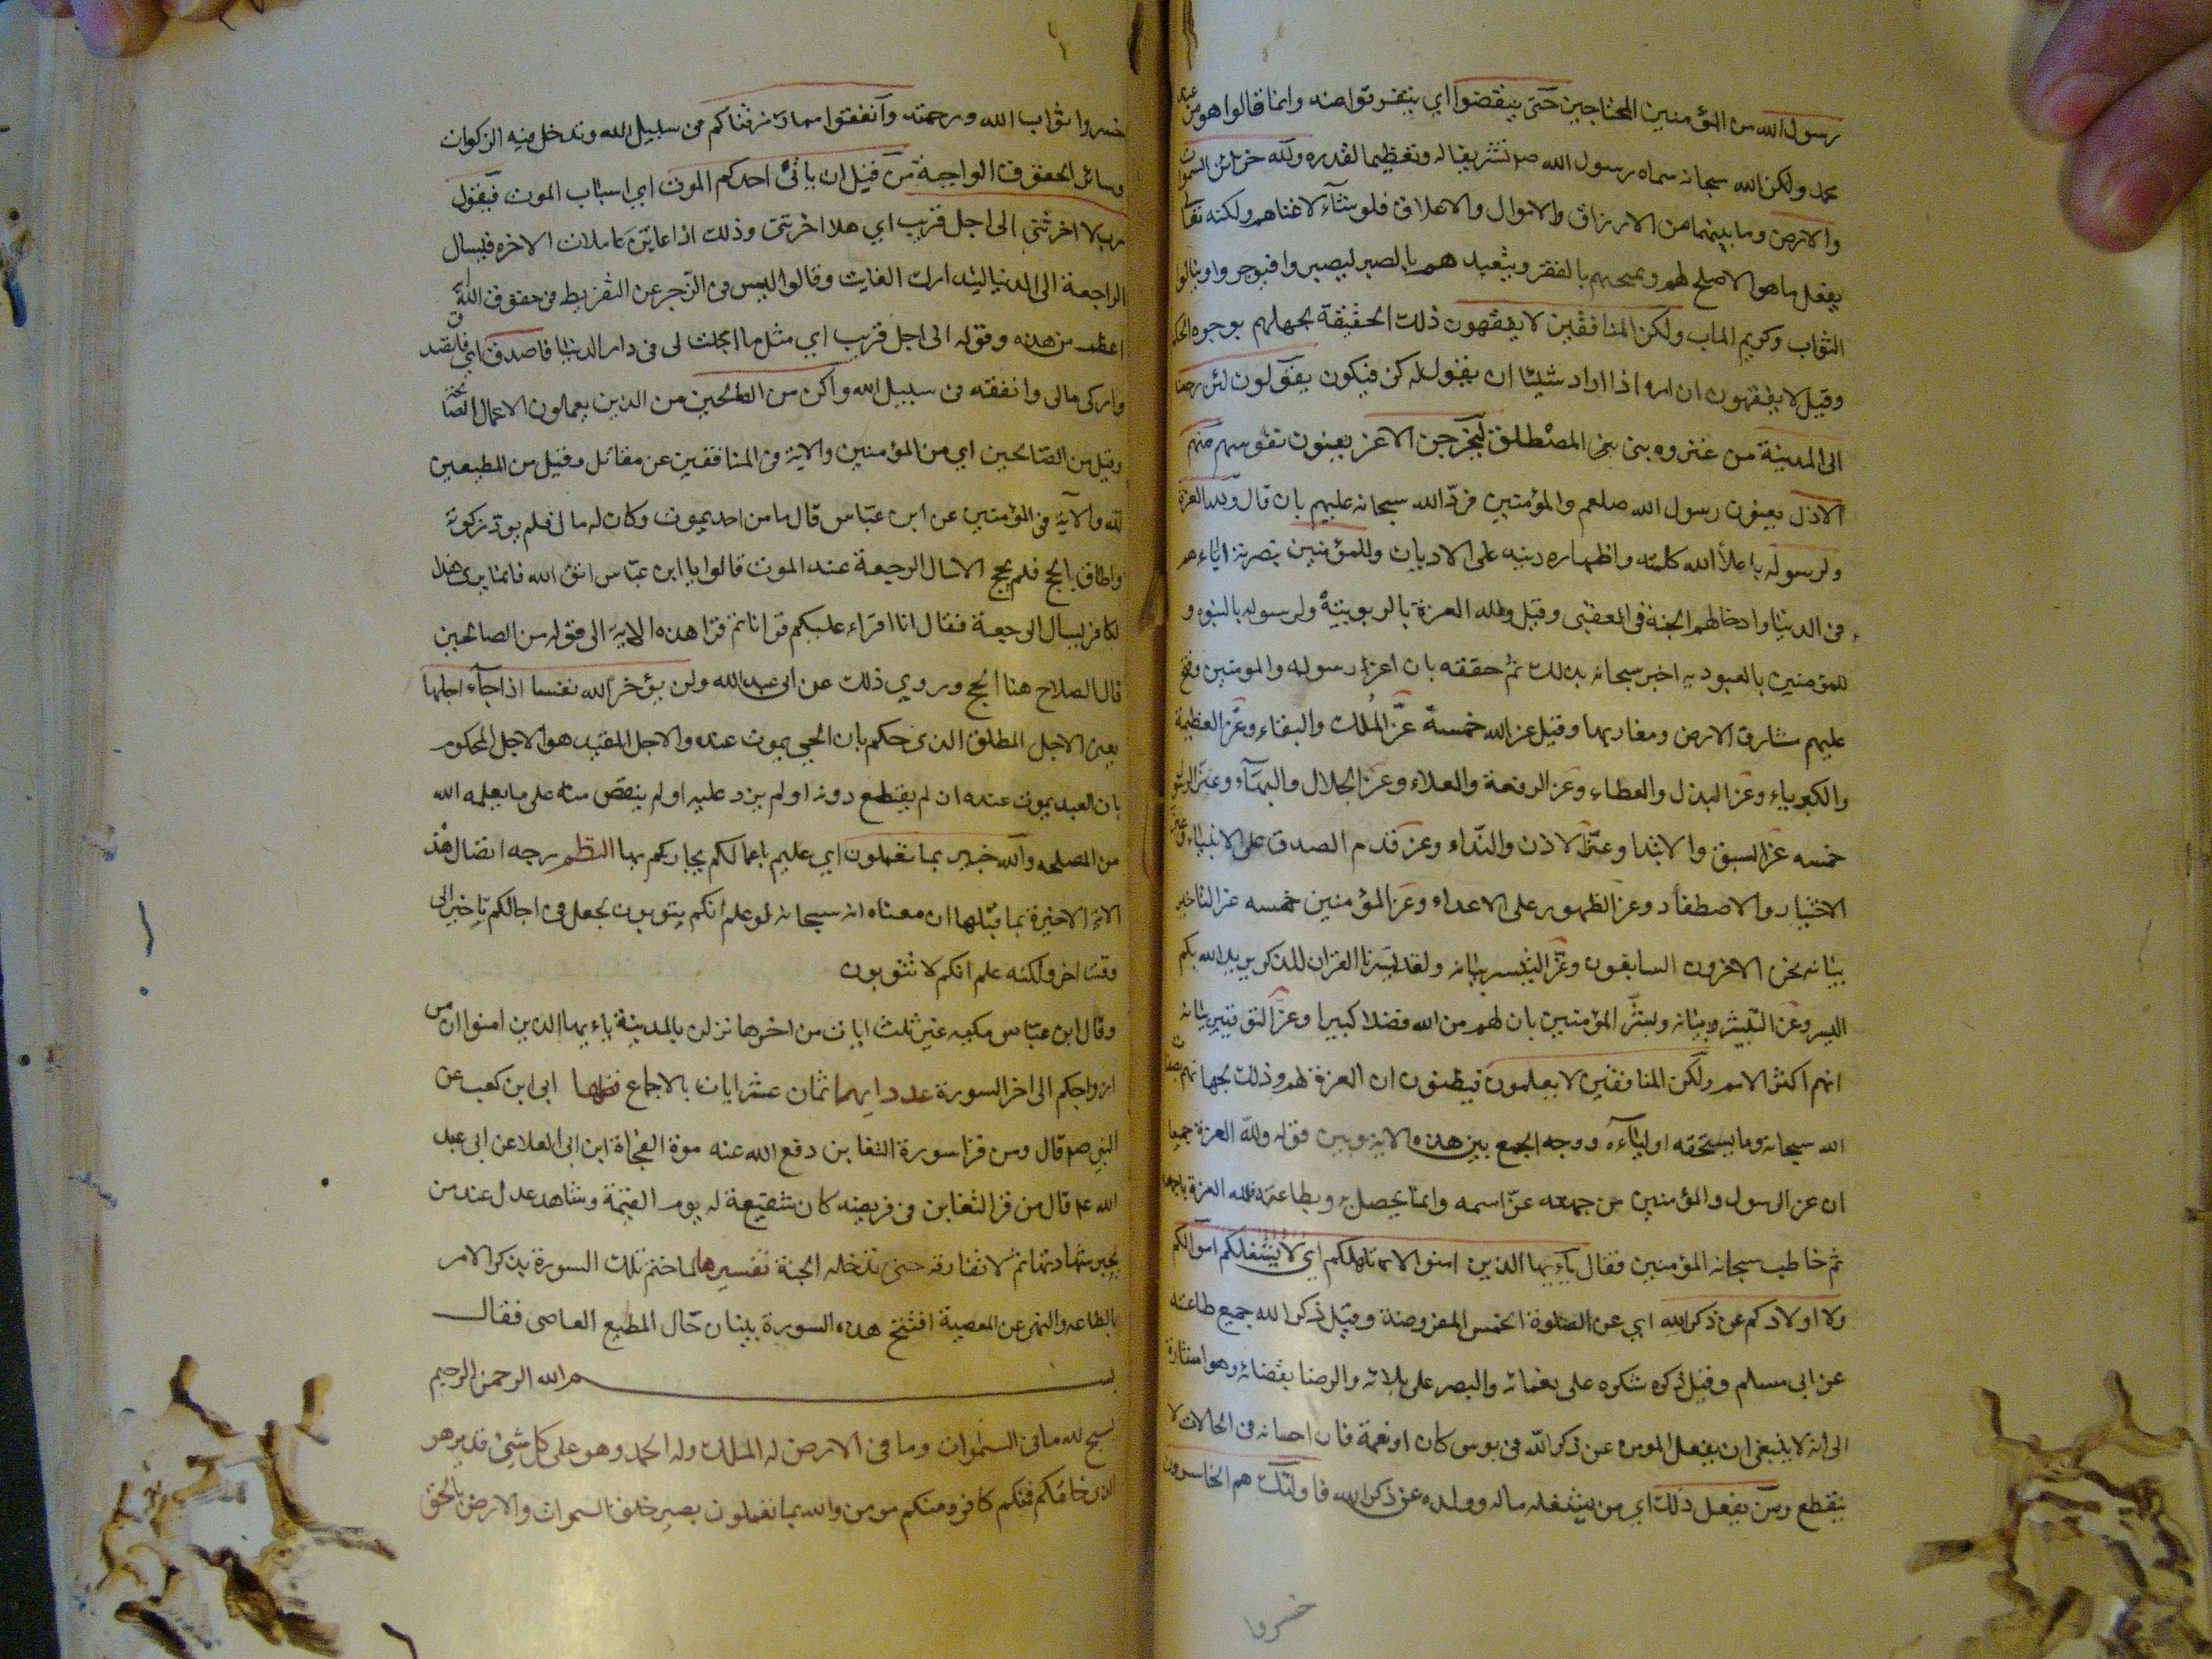 رسول الله من المؤمنين المحتاجين حتى ينفضوا اي يتفرقوا عنه وانما قالوا هو من عند
محمد ولكن الله سبحانه سماه رسول الله صم تشريفا له وتعظيما لقدره ولله خزائن السموات
والارض وما بينهما من الارزاق والاموال والاعلاق فلو شآء لاغناهم ولكنه تعالى
يفعل ما هو الاصلح لهم ويمتحنهم بالفقر ويتعبدهم بالصبر ليصبروا فيوجروا وينالوا
الثواب وكريم الماب ولكن المنافقين لا يفقهون ذلك الحقيقة بجهلهم بوجوه الحكمة
وقيل لا يفقهون ان امره اذا اراد شيئا ان يقول له كن فيكون يقولون لئن رجعنا
الى المدينة من غزوه بنى المصطلق ليخرجن الاعز يعنون نفوسهم منها
الاذل يعنون رسول الله صلعم والمؤمنين فردّ الله سبحانه عليهم بان قال ولله العزة
ولرسوله باعلاء الله كلمته واظهاره دينه على الاديان وللمؤمنين بنصرته اياهم
فى الدنيا وادخالهم الجنة فى العقبى وقيل ولله العزة بالربوبية ولرسوله بالنبوه و
للمؤمنين بالعبوديه اخبر سبحانه بذلك ثم حققه بان اعز رسوله والمومنين وفتح
عليهم مشارق الارض ومغاربها وقيل عز الله خمسة عز الملك والبقاء وعز العظمة
والكبرياء وعز البذل والعطاء وعز الرفعة والعلاء وعز الجلال والبهآء وعز الرسول
خمسه عز السبق والابتدا وعز الاذان والنداء وعز قدم الصدق على الانبياء وعز
الاختيار والاصطفاء وعز الظهور على الاعداء وعز المؤمنين خمسه عز التاخير
بيانه نحن الاخرون السابقون وعز التيسير بيانه ولقد يسرنا القران للذكر يريد الله بكم
اليسر وعز التبشير بيانه وبشر المؤمنين بان لهم من الله فضلا كبيرا وعز التوقير بيانه
انهم اكثر الامم ولكن المنافقين لا يعلمون فيظنون ان العزة لهم وذلك بجهلهم بصفات
الله سبحانه وما يستحقه اوليآءه ووجه الجمع بين هذه الاية وبين قوله ولله العزة جميعا
ان عز الرسول والمؤمنين من جمعه عز اسمه وانما يحصل به وبطاعته فلله العزة باجمعها
ثم خاطب سبحانه المؤمنين فقال يآيها الذين امنوا لا تلهكم اي لا يشغلكم اموالكم
ولا اولادكم عن ذكر الله اي عن الصلوة الخمس المفروضة وقيل ذكر الله جميع طاعته
عن ابى مسلم وقيل ذكره شكره على نعمائه والصبر على بلائه والرضا بقضائه وهو اشارة
الى انه لا ينبغى ان يغفل المومن عن ذكر الله فى بوس كان او نعمة فان احسانه فى الحالات لا
ينقطع ومن يفعل ذلك اي من يشغله ماله وولده عن ذكر الله فاولئك هم الخاسرون
خسروا
خسروا ثواب الله ورحمته وانفقوا مما رزقناكم فى سبيل الله وتدخل فيه الزكوات
وسائر الحقوق الواجبة من قبل ان ياتى احدكم الموت اي اسباب الموت فيقول
رب لولا اخرتنى الى اجل قريب اي هلا اخرتنى وذلك اذا عاين علامات الاخره فيسال
الراجعة الى الدنيا ليتدارك الفايت وقالوا ليس فى الزجر عن التفريط فى حقوق الله
اعظم من هذه وقوله الى اجل قريب اي مثل ما اجلت لى فى دار الدنيا فاصدق اي فاتصدق
وازكى مالى وانفقه فى سبيل الله واكن من الصالحين من الذين يعملون الاعمال الصالحة
وقيل من الصالحين اي من المؤمنين والاية فى المنافقين عن مقاتل وقيل من المطيعين
لله والآية فى المؤمنين عن ابن عباس قال ما من احد يموت وكان له مال فلم يود زكوته
واطاق الحج فلم يحج الا سال الرجعة عند الموت قالوا يا ابن عباس اتق الله فانما يرى هذا
الكافر يسال الرجعة فقال انا اقراء عليكم قرانا ثم قرا هذه الاية الى قوله من الصالحين
قال الصلاح هنا الحج وروي ذلك عن ابى عبد الله ولن يؤخر الله نفسا اذا جآء اجلها
يعنى الاجل المطلق الذى حكم بان الحي يموت عنده والاجل المقيد هو الاجل المحكوم
بان العبد يموت عنده ان لم يقتطع دونه او لم يزد عليه او لم ينقص منه على ما يعلمه الله
من المصلحه والله خبير بما تعملون اي عليم باعمالكم يجازيكم بها النظم وجه اتصال هذه
الاية الاخيرة بما قبلها ان معناه انه سبحانه لو علم انكم يتوبون لجعل فى اجالكم تاخير الى
وقت اخر ولكنه علم انكم لا تتوبون
وقال ابن عباس مكيه غير ثلث ايات من اخرها نزلن بالمدينة ياءيها الذين امنوا ان من
ازواجكم الى اخر السورة عدد ايها ثمان عشر ايات بالاجماع فضلها ابى ابن كعب عن
النبي صم قال ومن قرا سورة التغابن دفع الله عنه موة الفجاة ابن ابى العلا عن ابى عبد
الله عم قال من قرا التغابن فى فريضه كان شفيعة له يوم القيمة وشاهد عدل عند من
يجيز شهادتها ثم لا تفارقه حتى تدخله الجنة تفسيرها لما ختم تلك السورة بذكر الامر
بالطاعه والنهى عن المعصية افتتح هذه السورة ببيان حال المطيع العاصى فقال
بسم الله الرحمن الرحيم
يسبح لله ما فى السموات وما فى الارض له الملك وله الحمد وهو على كل شئ قدير هو
الذى خلقكم فمنكم كافر ومنكم مومن والله بما تعملون بصير خلق السموات والارض بالحق